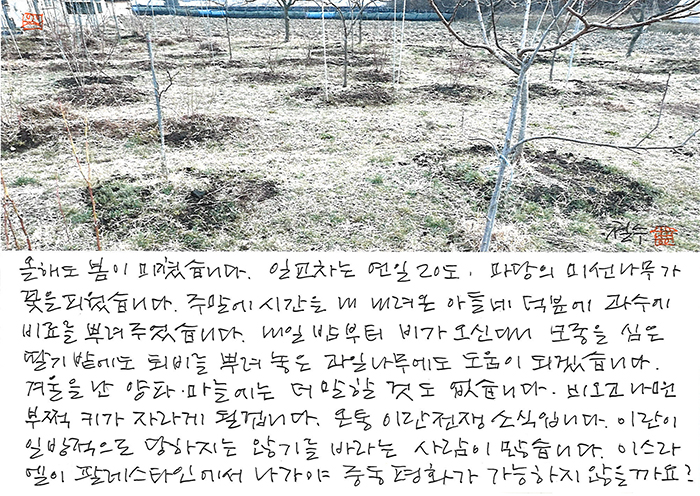 철수
올해도 봄이 미쳤습니다. 일교차는 연일 20도. 마당의 미선나무가
꽃을 피웠습니다. 주말에 시간을 내 내려온 아들네 덕분에 과수에
비료를 뿌려주었습니다. 내일 밤부터 비가 오신대니 모종을 심은
딸기밭에도 퇴비를 뿌려 놓은 과일나무에도 도움이 되겠습니다.
겨울을 난 양파·마늘에는 더 말할 것도 없습니다. 비오고나면
부쩍 키가 자라게 될겁니다. 온통 이란전쟁 소식입니다. 이란이
일방적으로 망하지는 않기를 바라는 사람이 많습니다. 이스라
엘이 팔레스타인에서 나가야 중동평화가 가능하지 않을까요?